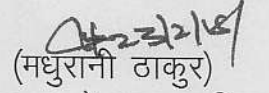 23/2/18
(मधुरानी ठाकुर)